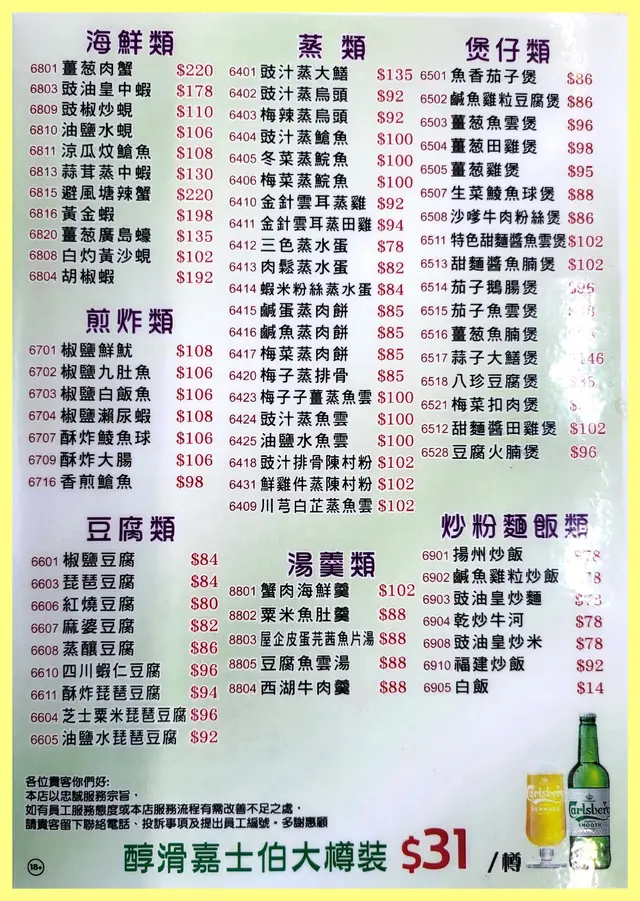 海鮮類
6801 薑葱肉蟹 $220
6803 豉油皇中蝦 $178
6809 豉椒炒蜆 $110
6810 油鹽水蜆 $106
6811 涼瓜炆鯧魚 $108
6813 蒜茸蒸中蝦 $130
6815 避風塘辣蟹 $220
6816 黃金蝦 $198
6820 薑葱廣島蠔 $135
6808 白灼黃沙蜆 $102
6804 胡椒蝦 $192
煎炸類
6701 椒鹽鮮魷 $108
6702 椒鹽九肚魚 $106
6703 椒鹽白飯魚 $106
6704 椒鹽瀨尿蝦 $108
6707 酥炸鯪魚球 $106
6709 酥炸大腸 $106
6716 香煎鯧魚 $98
豆腐類
6601 椒鹽豆腐 $84
6603 琵琶豆腐 $84
6606 紅燒豆腐 $80
6607 麻婆豆腐 $82
6608 蒸釀豆腐 $86
6610 四川蝦仁豆腐 $96
6611 酥炸琵琶豆腐 $94
6604 芝士粟米琵琶豆腐 $96
6605 油鹽水琵琶豆腐 $92
蒸類
6401 豉汁蒸大鱔 $135
6402 豉汁蒸烏頭 $92
6403 梅辣蒸烏頭 $92
6404 豉汁蒸鯧魚 $100
6405 冬菜蒸鯇魚 $100
6406 梅菜蒸鯇魚 $100
6410 金針雲耳蒸雞 $92
6411 金針雲耳蒸田雞 $94
6412 三色蒸水蛋 $78
6413 肉鬆蒸水蛋 $82
6414 蝦米粉絲蒸水蛋 $84
6415 鹹蛋蒸肉餅 $85
6416 鹹魚蒸肉餅 $85
6417 梅菜蒸肉餅 $85
6420 梅子蒸排骨 $85
6423 梅子子薑蒸魚雲 $100
6424 豉汁蒸魚雲 $100
6425 油鹽水魚雲 $100
6418 豉汁排骨陳村粉 $102
6431 鮮雞件蒸陳村粉 $102
6409 川芎白芷蒸魚雲 $102
湯羹類
8801 蟹肉海鮮羹 $102
8802 粟米魚肚羹 $88
8803 屋企皮蛋芫茜魚片湯 $88
8805 豆腐魚雲湯 $88
8804 西湖牛肉羹 $88
煲仔類
6501 魚香茄子煲 $86
6502 鹹魚雞粒豆腐煲 $86
6503 薑葱魚雲煲 $96
6504 薑葱田雞煲 $98
6505 薑葱雞煲 $95
6507 生菜鯪魚球煲 $88
6508 沙嗲牛肉粉絲煲 $86
6511 特色甜麵醬魚雲煲 $102
6513 甜麵醬魚腩煲 $102
6514 茄子鵝腸煲 $96
6515 茄子魚雲煲
6516 薑葱魚腩煲
6517 蒜子大鱔煲 $146
6518 八珍豆腐煲
6521 梅菜扣肉煲
6512 甜麵醬田雞煲 $102
6528 豆腐火腩煲 $96
炒粉麵飯類
6901 揚州炒飯 $78
6902 鹹魚雞粒炒飯
6903 豉油皇炒麵 $78
6904 乾炒牛河 $78
6908 豉油皇炒米 $78
6910 福建炒飯 $92
6905 白飯 $14
各位貴客你們好:
本店以忠誠服務宗旨，
如有員工服務態度或本店服務流程有需改善不足之處，
請貴客留下聯絡電話、投訴事項及提出員工編號。多謝惠顧
18+
醇滑嘉士伯大樽裝 $31 /樽
Carlsberg
Carlsberg
SMOOTH